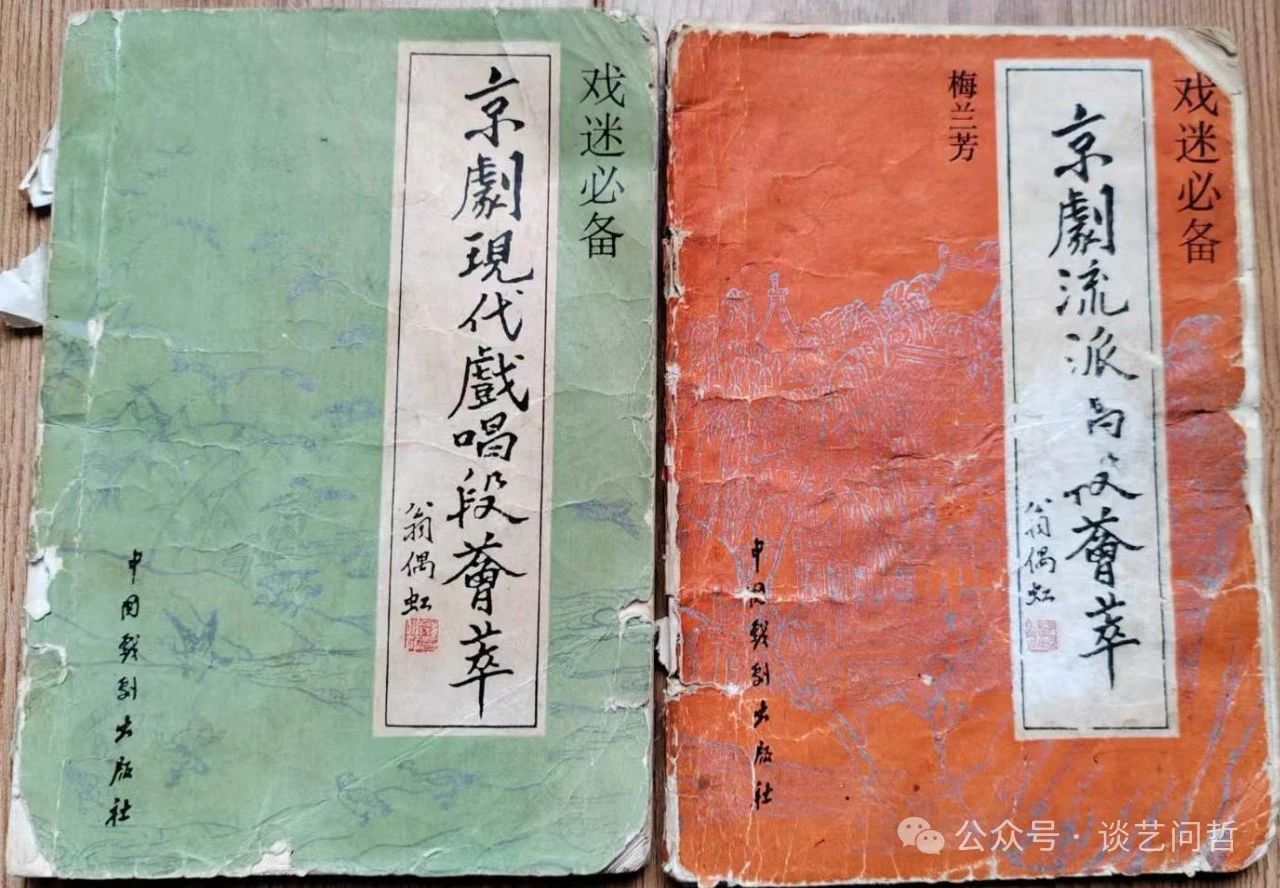 戏迷必备
京劇現代戲唱段薈萃
翁偶虹
中国戏剧出版社
戏迷必备
京劇流派薈萃
翁偶虹
梅兰芳
中国戏剧出版社
公众号·谈艺问哲